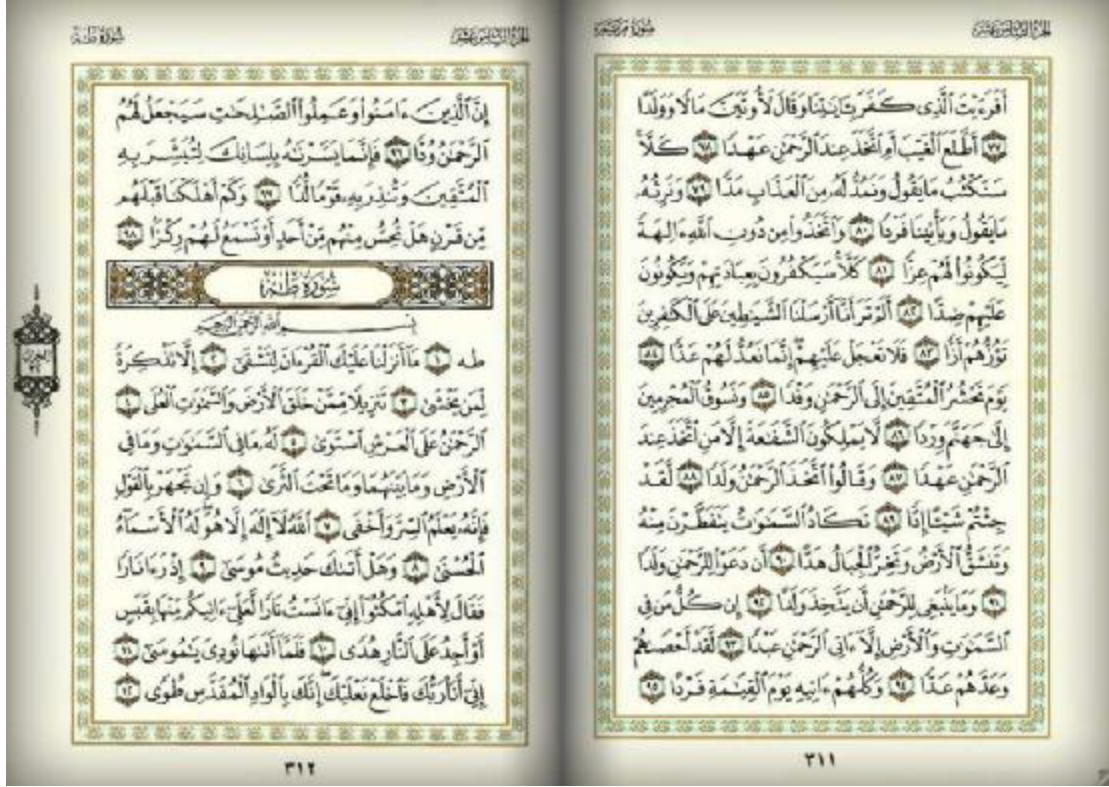 الجزء السادس عشر سورة مريم
أَفَرَءَيْتَ ٱلَّذِى كَفَرَ بِـَٔايَـٰتِنَا وَقَالَ لَأُوتَيَنَّ مَالًا وَوَلَدًا
٧٧ أَطَّلَعَ ٱلْغَيْبَ أَمِ ٱتَّخَذَ عِندَ ٱلرَّحْمَـٰنِ عَهْدًا ٧٨ كَلَّا
سَنَكْتُبُ مَا يَقُولُ وَنَمُدُّ لَهُۥ مِنَ ٱلْعَذَابِ مَدًّا ٧٩ وَنَرِثُهُۥ
مَا يَقُولُ وَيَأْتِينَا فَرْدًا ٨٠ وَٱتَّخَذُوا۟ مِن دُونِ ٱللَّهِ ءَالِهَةً
لِّيَكُونُوا۟ لَهُمْ عِزًّا ٨١ كَلَّا سَيَكْفُرُونَ بِعِبَادَتِهِمْ وَيَكُونُونَ
عَلَيْهِمْ ضِدًّا ٨٢ أَلَمْ تَرَ أَنَّآ أَرْسَلْنَا ٱلشَّيَـٰطِينَ عَلَى ٱلْكَـٰفِرِينَ
تَؤُزُّهُمْ أَزًّا ٨٣ فَلَا تَعْجَلْ عَلَيْهِمْ إِنَّمَا نَعُدُّ لَهُمْ عَدًّا ٨٤
يَوْمَ نَحْشُرُ ٱلْمُتَّقِينَ إِلَى ٱلرَّحْمَـٰنِ وَفْدًا ٨٥ وَنَسُوقُ ٱلْمُجْرِمِينَ
إِلَىٰ جَهَنَّمَ وِرْدًا ٨٦ لَّا يَمْلِكُونَ ٱلشَّفَـٰعَةَ إِلَّا مَنِ ٱتَّخَذَ عِندَ
ٱلرَّحْمَـٰنِ عَهْدًا ٨٧ وَقَالُوا۟ ٱتَّخَذَ ٱلرَّحْمَـٰنُ وَلَدًا ٨٨ لَّقَدْ
جِئْتُمْ شَيْـًٔا إِدًّا ٨٩ تَكَادُ ٱلسَّمَـٰوَٰتُ يَتَفَطَّرْنَ مِنْهُ
وَتَنشَقُّ ٱلْأَرْضُ وَتَخِرُّ ٱلْجِبَالُ هَدًّا ٩٠ أَن دَعَوْا۟ لِلرَّحْمَـٰنِ وَلَدًا
٩١ وَمَا يَنۢبَغِى لِلرَّحْمَـٰنِ أَن يَتَّخِذَ وَلَدًا ٩٢ إِن كُلُّ مَن فِى
ٱلسَّمَـٰوَٰتِ وَٱلْأَرْضِ إِلَّآ ءَاتِى ٱلرَّحْمَـٰنِ عَبْدًا ٩٣ لَّقَدْ أَحْصَىٰهُمْ
وَعَدَّهُمْ عَدًّا ٩٤ وَكُلُّهُمْ ءَاتِيهِ يَوْمَ ٱلْقِيَـٰمَةِ فَرْدًا ٩٥
٣١١
الجزء السادس عشر سورة طه
إِنَّ ٱلَّذِينَ ءَامَنُوا۟ وَعَمِلُوا۟ ٱلصَّـٰلِحَـٰتِ سَيَجْعَلُ لَهُمُ
ٱلرَّحْمَـٰنُ وُدًّا ٩٦ فَإِنَّمَا يَسَّرْنَـٰهُ بِلِسَانِكَ لِتُبَشِّرَ بِهِ
ٱلْمُتَّقِينَ وَتُنذِرَ بِهِۦ قَوْمًا لُّدًّا ٩٧ وَكَمْ أَهْلَكْنَا قَبْلَهُم
مِّن قَرْنٍ هَلْ تُحِسُّ مِنْهُم مِّنْ أَحَدٍ أَوْ تَسْمَعُ لَهُمْ رِكْزًۢا ٩٨
سُورَةُ طه
بِسْمِ ٱللَّهِ ٱلرَّحْمَـٰنِ ٱلرَّحِيمِ
طه ١ مَآ أَنزَلْنَا عَلَيْكَ ٱلْقُرْءَانَ لِتَشْقَىٰٓ ٢ إِلَّا تَذْكِرَةً
لِّمَن يَخْشَىٰ ٣ تَنزِيلًا مِّمَّنْ خَلَقَ ٱلْأَرْضَ وَٱلسَّمَـٰوَٰتِ ٱلْعُلَى ٤
ٱلرَّحْمَـٰنُ عَلَى ٱلْعَرْشِ ٱسْتَوَىٰ ٥ لَهُۥ مَا فِى ٱلسَّمَـٰوَٰتِ وَمَا فِى
ٱلْأَرْضِ وَمَا بَيْنَهُمَا وَمَا تَحْتَ ٱلثَّرَىٰ ٦ وَإِن تَجْهَرْ بِٱلْقَوْلِ
فَإِنَّهُۥ يَعْلَمُ ٱلسِّرَّ وَأَخْفَى ٧ ٱللَّهُ لَآ إِلَـٰهَ إِلَّا هُوَ لَهُ ٱلْأَسْمَآءُ
ٱلْحُسْنَىٰ ٨ وَهَلْ أَتَىٰكَ حَدِيثُ مُوسَىٰٓ ٩ إِذْ رَءَا نَارًا
فَقَالَ لِأَهْلِهِ ٱمْكُثُوٓا۟ إِنِّىٓ ءَانَسْتُ نَارًا لَّعَلِّىٓ ءَاتِيكُم مِّنْهَا بِقَبَسٍ
أَوْ أَجِدُ عَلَى ٱلنَّارِ هُدًى ١٠ فَلَمَّآ أَتَىٰهَا نُودِىَ يَـٰمُوسَىٰٓ ١١
إِنِّىٓ أَنَا۠ رَبُّكَ فَٱخْلَعْ نَعْلَيْكَ إِنَّكَ بِٱلْوَادِ ٱلْمُقَدَّسِ طُوًى ١٢
الحزب
٣٢
٣١٢